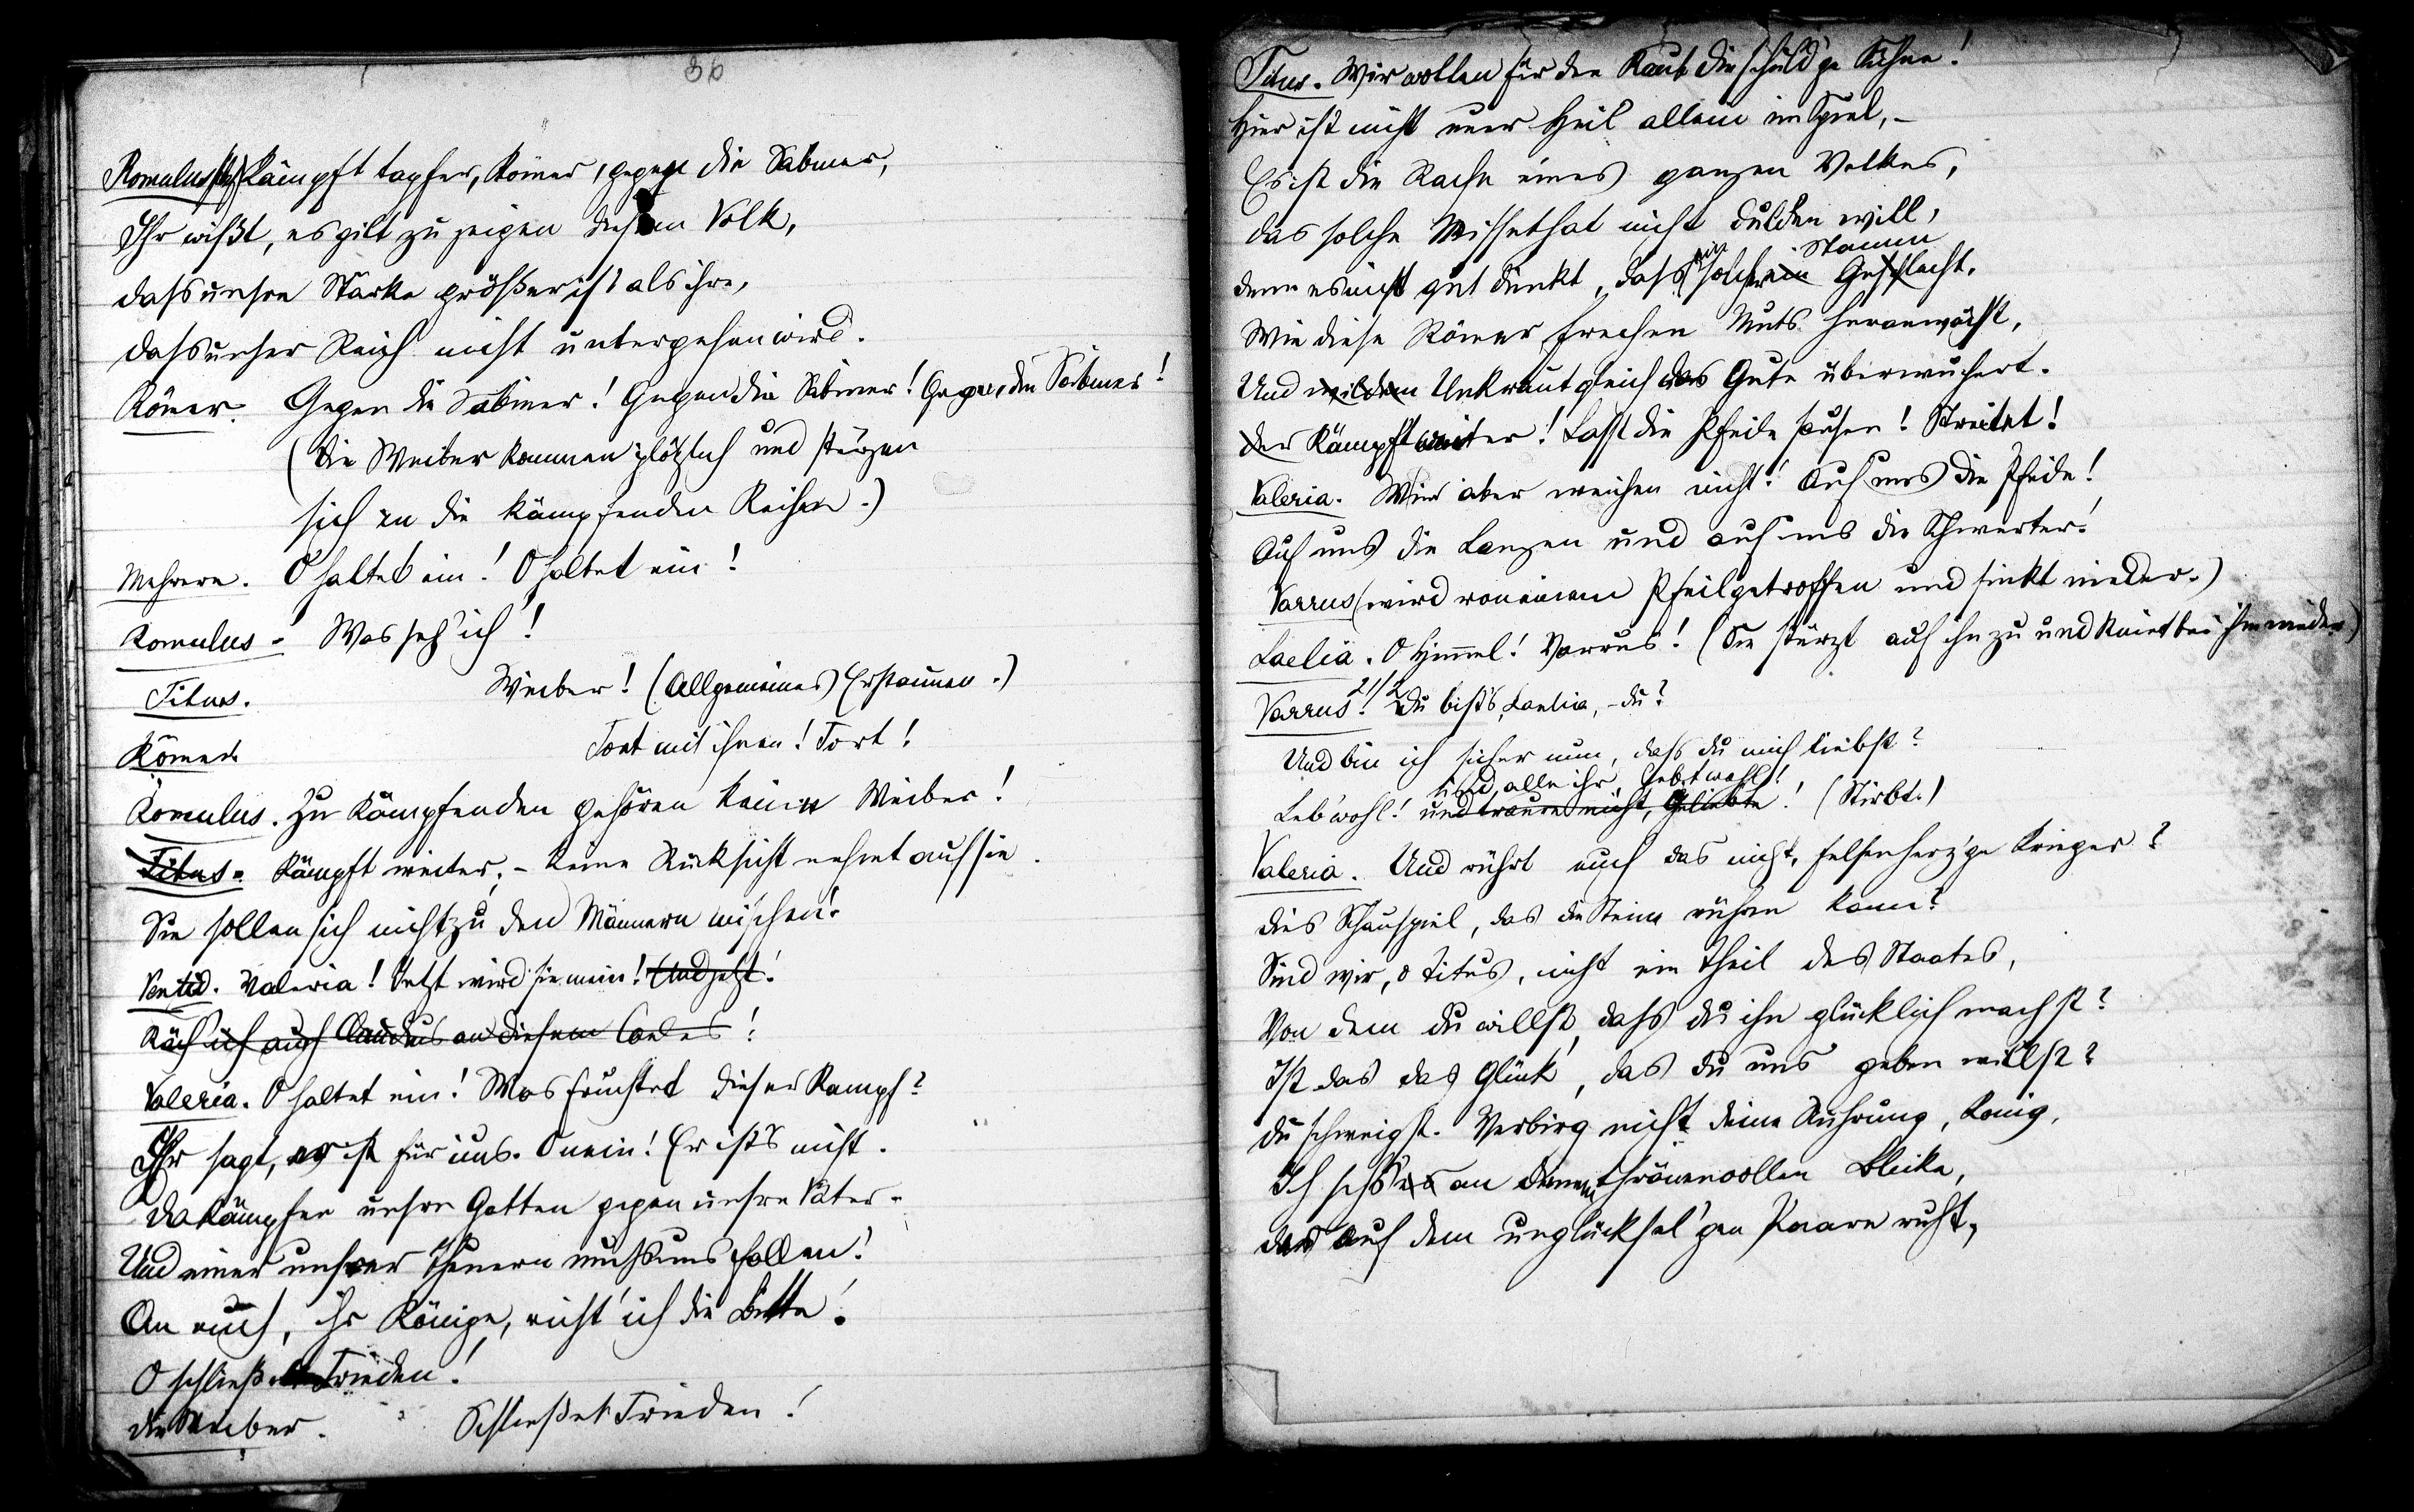 36
Romulus. Kämpft tapfer, Römer, gegen die Sabiner,
Ihr wißt, es gilt zu zeigen diesem Volk,
dass unsre Stärke größer ist als ihre,
dass unser Reich nicht untergehen wird.
Römer. Gegen die Sabiner! Gegen die Sabiner! Gegen die Sabiner!
(die Weiber kommen plötzlich und stürzen
sich in die kämpfenden Reihen.)
Mehrere. O haltet ein! O haltet ein!
Romulus. Was seh' ich!
Titus. Weiber! (Allgemeines Erstaunen.)
Römer. Fort mit ihnen! Fort!
Romulus. Zu Kämpfenden gehören keine Weiber!
Titus. Kämpft weiter, – keine Rücksicht nehmt auf sie.
Sie sollen sich nicht zu den Männern mischen!
Ventid. Valeria! Jetzt wird sie mein! Und jetzt!
Räch' ich auch Claudius an diesem!
Valeria. O haltet ein! Was fruchtet dieser Kampf?
Ihr sagt, er ist für uns. O nein! Er ist's nicht.
da kämpfen unsre Gatten gegen unsre Väter.
Und einer unsrer Theuern muß uns fallen!
An euch, ihr Könige, richt' ich die Bitte!
O schließet Frieden!
die Weiber. Schließet Frieden!
Titus. Wir wollen für den Raub die schuld'ge Sühne!
Hier ist nicht euer Heil allein im Spiel, –
Es ist die Rache eines ganzen Volkes,
das solche Missethat nicht dulden will,
ein Stamm
dem es nicht gut dünkt, dass solch ein Geschlecht,
Wie diese Römer, frechen Muts heranwächst,
Und wildem Unkraut gleich das Gute überwuchert.
der Kämpft weiter! Lasst die Pfeile sausen! Streitet!
Valeria. Wir aber weichen nicht! Auf uns die Pfeile!
Auf uns die Lanzen und auf uns die Schwerter!
Varrus (wird von einem Pfeil getroffen und sinkt nieder.)
Laelia. O Himmel! Varrus! (Sie stürzt auf ihn zu und kniet bei ihm nieder.)
Varrus. Du bist's, Laelia, – du?
Und bin ich sicher nun, dass du mich liebst?
Und alle ihr, lebt wohl!
Leb' wohl! und traure nicht, Geliebte! (Stirbt.)
Valeria. Und rührt euch das nicht, felsenherz'ge Krieger?
dies Schauspiel, das die Steine rühren kann?
Sind wir, o Titus, nicht ein Theil des Staates,
Von dem du willst, dass du ihn glücklich machst?
Ist das das Glück, das du uns geben willst?
du schweigst. Verbirg nicht deine Rührung, König,
Ich seh's es an deinem thränenvollen Blicke,
der auf dem unglücksel'gen Paare ruht,